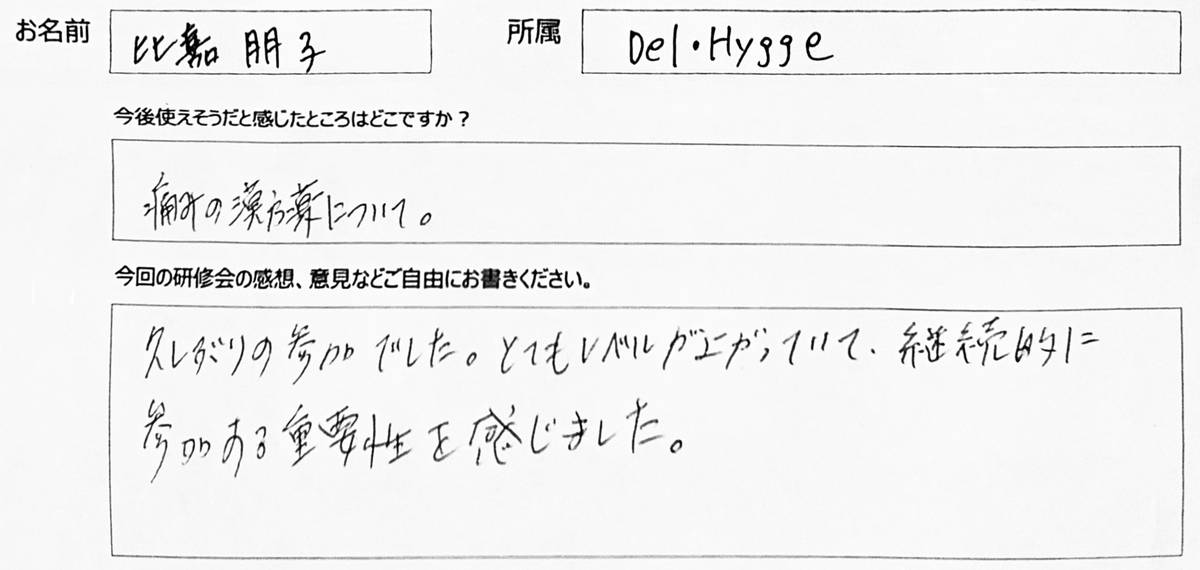 お名前 比嘉 朋子 所属 Del・Hygge
今後使えそうだと感じたところはどこですか？
痛みの漢方薬について。
今回の研修会の感想、意見などご自由にお書きください。
久しぶりの参加でした。とてもレベルが上がっていて、継続的に
参加する重要性を感じました。